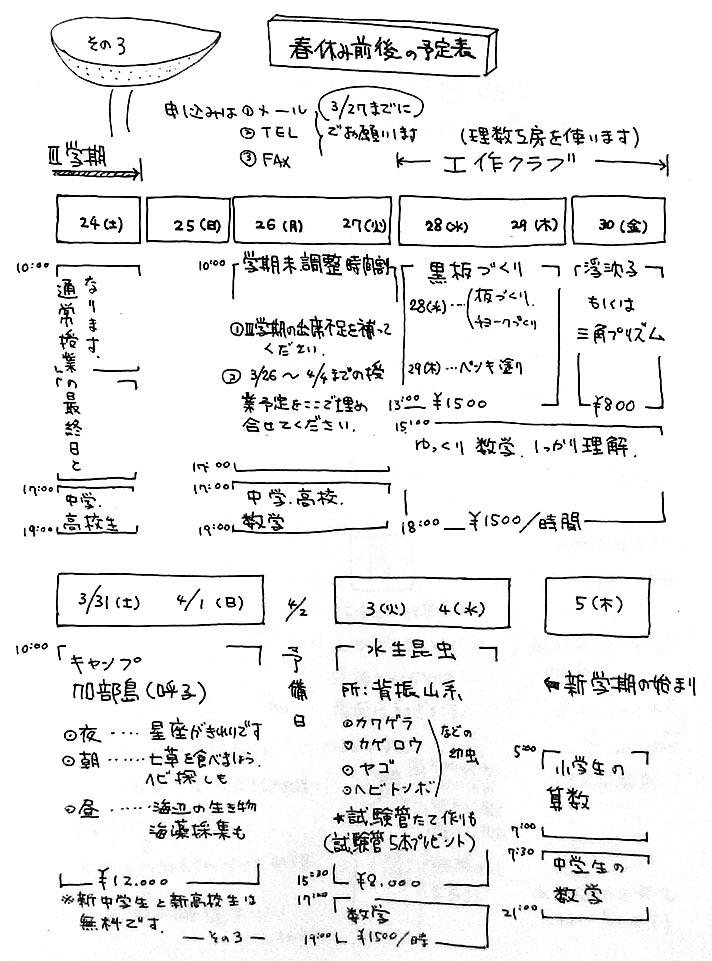 その3
春休み前後の予定表
申し込みは ①メール
②TEL
③FAX
3/27までに
でお願いします
(理数工房を使います)
Ⅲ学期
工作クラブ
24(土)
25(日)
26(月) 27(火)
28(水) 29(木)
30(金)
10:00
通常授業の最終日と
なります.
17:00
中学.
高校生
19:00
10:00
学期末調整時間割
①Ⅲ学期の出席不足を補って
ください.
② 3/26〜4/4までの授
業予定をここで埋め
合せてください.
17:00
17:00
中学.高校.
数学
19:00
黒板づくり
28(水)…(板づくり.
チョークづくり
29(木)…ペンキ塗り
13:00 ¥1500
浮沈子
もしくは
三角プリズム
¥800
15:00
ゆっくり数学.しっかり理解.
18:00 ¥1500/時間
3/31(土) 4/1(日)
4/2
3(火) 4(水)
5(木)
10:00
キャンプ
加部島(呼子)
⊙夜‥‥星座がきれいです
⊙朝‥‥七草を食べましょう.
ヘビ探しも
⊙昼‥‥‥海辺の生き物
海藻採集も
¥12.000
※新中学生と新高校生は
無料です.
予備日
水生昆虫
所:背振山系
⊙カワゲラ
⊙カゲロウ
⊙ヤゴ
⊙ヘビトンボ
などの
幼虫
*試験管たて作りも
(試験管5本プレゼント)
15:30 ¥8.000
17:00
数学
19:00 ¥1500/時
新学期の始まり
5:00
小学生の
算数
7:00
7:30
中学生の
数学
21:00
—その3—